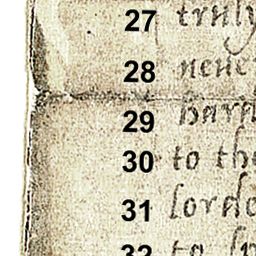 27 truly
28 neue
29 harde
30 to th
31 lorde
32 to